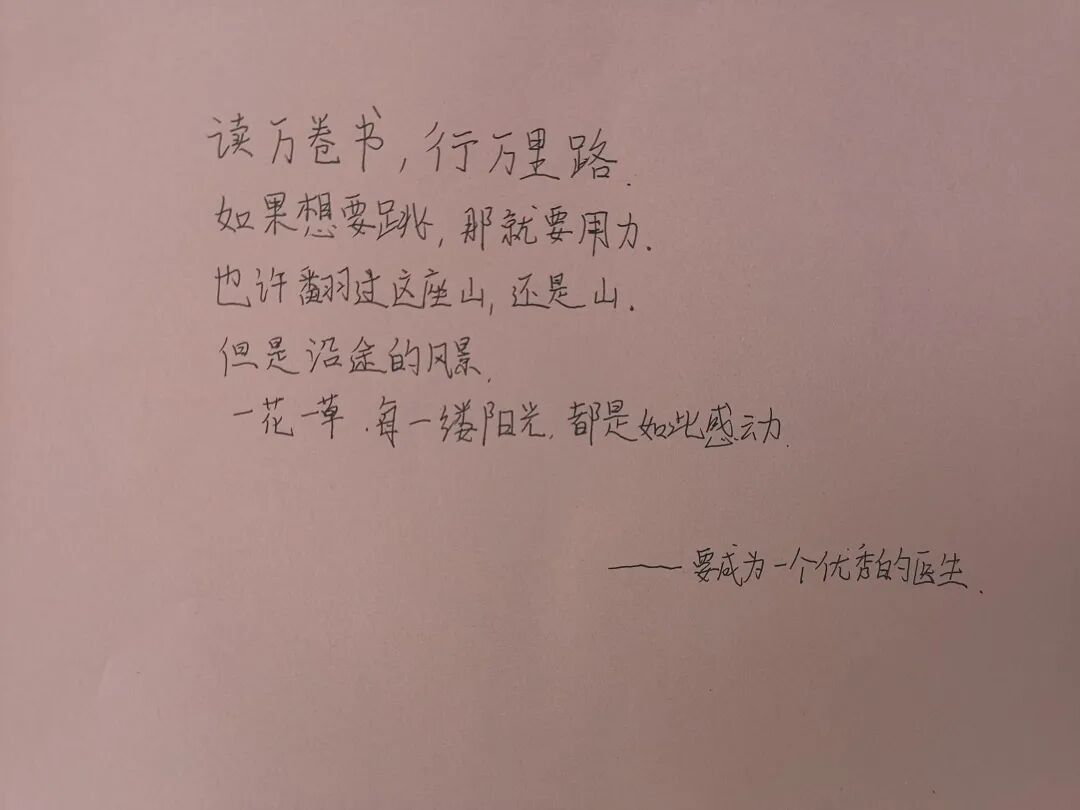 读万卷书,行万里路.
如果想要跳,那就要用力.
也许翻过这座山,还是山.
但是沿途的风景,
一花一草.每一缕阳光,都是如此感动.
——要成为一个优秀的医生.